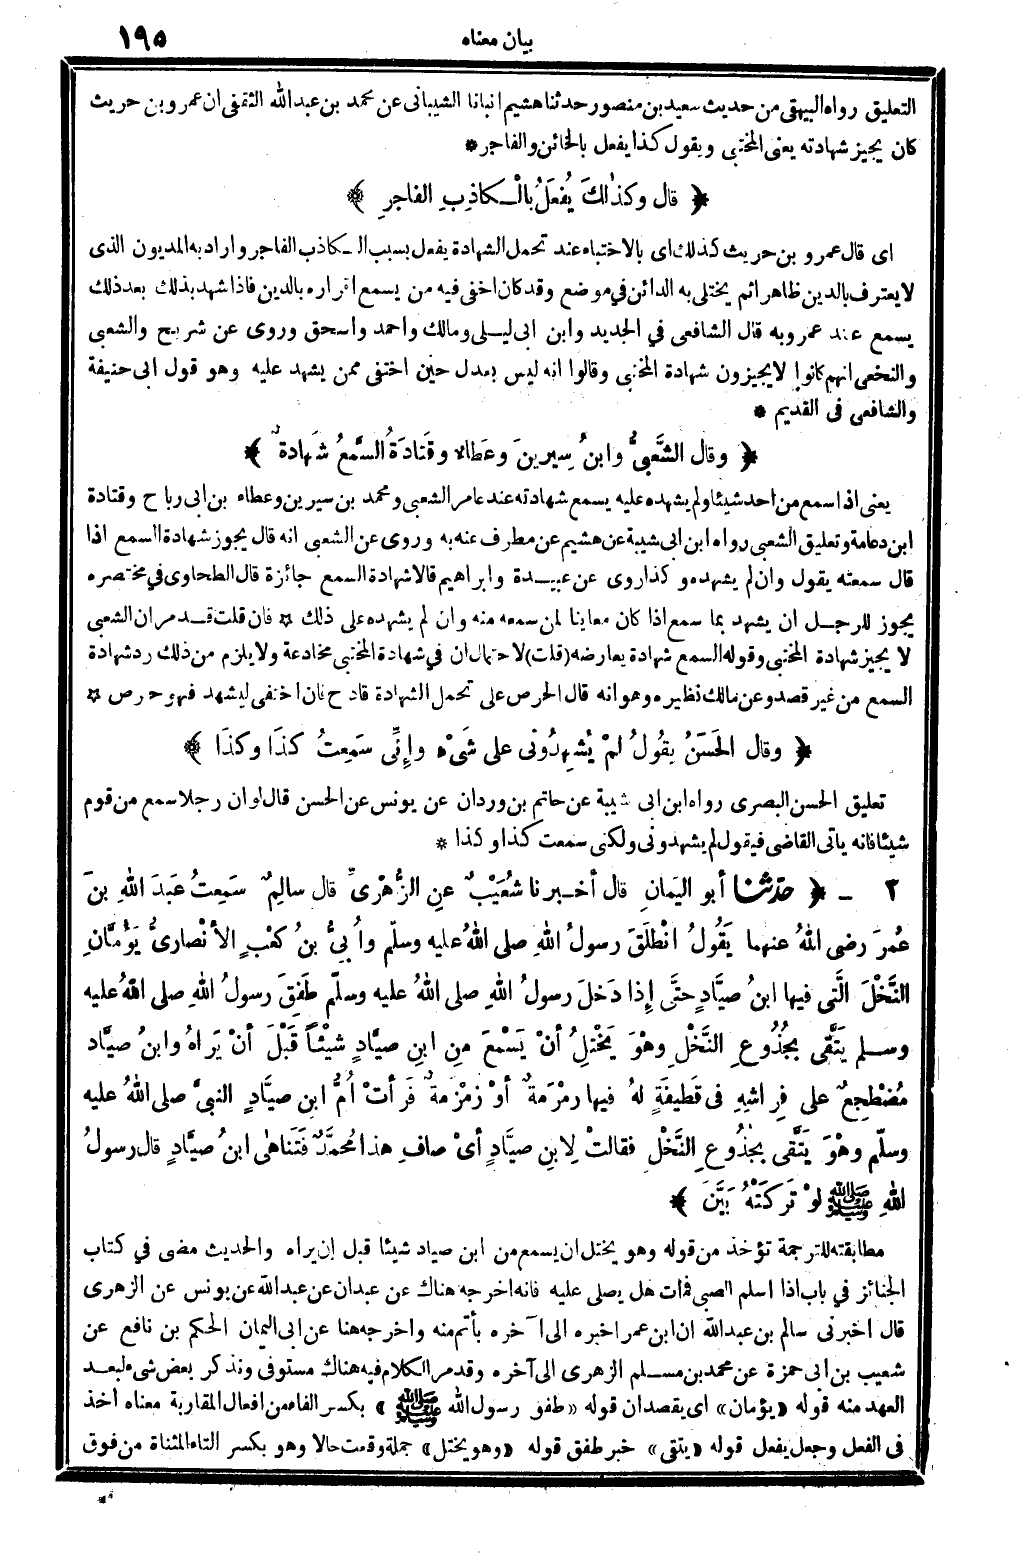 بيان معناه ١٩٥
التعليق رواه البيهقى من حديث سعيد بن منصور حدثنا هشيم انبانا الشيبانى عن محمد بن عبد الله الثقفى ان عمرو بن حريث
كان يجيز شهادته يعنى المختبى ويقول كذا يفعل بالخائن والفاجر *
﴿ قال وكَذٰلِكَ يُفْعَلُ بالْـكاذِبِ الفاجرِ ﴾
اى قال عمرو بن حريث كذلك اى بالاختباء عند تحمل الشهادة يفعل بسبب الـكاذب الفاجر واراد به المديون الذى
لا يعترف بالدين ظاهرا ثم يختلى به الدائن في موضع وقد كان اخفى فيه من يسمع اقراره بالدين فاذا شهد بذلك بعد ذلك
يسمع عند عمرو به قال الشافعى في الجديد وابن ابى ليـلى ومالك واحمد واسحق وروى عن شريح والشعبى
والنخعى انهم كانوا لا يجيزون شهادة المختبى وقالوا انه ليس بعدل حين اختفى ممن يشهد عليه وهو قول ابى حنيفة
والشافعى فى القديم *
﴿ وقال الشَّعْبِيُّ وابنُ سِيرِينَ وعَطاءٌ وقَتَادَةُ السَّمْعُ شَهادةٌ ﴾
يعنى اذا سمع من احد شيئا ولم يشهده عليه يسمع شهادته عند عامر الشعبى ومحمد بن سيرين وعطاء بن ابى رباح وقتادة
ابن دعامة وتعليق الشعبى رواه ابن ابى شيبة عن هشيم عن مطرف عنه به وروى عن الشعبى انه قال يجوز شهادة السمع اذا
قال سمعته يقول وان لم يشهده وكذا روى عن عبيـدة وابراهيم قالا شهادة السمع جائزة قال الطحاوى في مختصره
يجوز للرجـل ان يشهد بما سمع اذا كان معاينا لمن سمعه منه وان لم يشهده على ذلك ☆ فان قلت قـد مر ان الشعبى
لا يجيز شهادة المختبى وقوله السمع شهادة يعارضه (قلت) لاحتمال ان في شهادة المختبى مخادعة ولا يلزم من ذلك رد شهادة
السمع من غير قصد وعن مالك نظيره وهو انه قال الحرص على تحمل الشهادة قادح فان اختفى ليشهد فهو حرص ☆
﴿ وقال الحَسَنُ يقُولُ لمْ يُشْهِدُونى على شَىْءٍ وإنِّى سَمِعتُ كذَا وكذَا ﴾
تعليق الحسن البصرى رواه ابن ابى شيبة عن حاتم بن وردان عن يونس عن الحسن قال لو ان رجلا سمع من قوم
شيئا فانه ياتى القاضى فيقول لم يشهدونى ولكنى سمعت كذا وكذا *
٢ ـ ﴿ حدّثنا أبو اليَمانِ قال أخـبرنا شُعَيْبٌ عنِ الزُّهْرىِّ قال سالِمٌ سَمِعتُ عَبدَ اللهِ بنَ
عُمرَ رضى اللهُ عنهما يَقُولُ انْطلَقَ رسولُ اللهِ صلى اللهُ عليه وسلّم وأُبىُّ بنُ كَعْبٍ الأنْصارىُّ يَؤُمَّانِ
النَّخْلَ الَّتى فيها ابنُ صيَّادٍ حتَّى إذا دَخلَ رسولُ اللهِ صلى اللهُ عليه وسلّم طَفِقَ رسولُ اللهِ صلى اللهُ عليه
وسـلم يَتَّقى بِجُذُوعِ النَّخْلِ وهْوَ يَخْتِلُ أنْ يَسْمَعَ مِنِ ابنِ صيَّادٍ شَيْئًا قَبْلَ أنْ يَراهُ وابنُ صيَّاد
مُضْطَجِعٌ على فِراشِهِ فى قَطيفَةٍ لهُ فيها رمْرَمةٌ أوْ زمْزمةٌ فَرأتْ أُمُّ ابنِ صيَّادٍ النبىَّ صلى اللهُ عليه
وسلّم وهْوَ يَتَّقى بجُذُوعِ النَّخْلِ فقالتْ لِابنِ صيَّادٍ أىْ صافِ هذا مُحمَّدٌ فَتَناهٰى ابنُ صيَّادٍ قال رسولُ
اللهِ ﷺ لوْ تَركَتْهُ بَيَّنَ ﴾
مطابقته للترجمة تؤخذ من قوله وهو يختل ان يسمع من ابن صياد شيئا قبل ان يراه والحديث مضى في كتاب
الجنائز في باب اذا اسلم الصبى فمات هل يصلى عليه فانه اخرجه هناك عن عبدان عن عبد الله عن يونس عن الزهرى
قال اخبرنى سالم بن عبد الله ان ابن عمر اخبره الى آخره بأتم منه واخرجه هنا عن ابى اليمان الحكم بن نافع عن
شعيب بن ابى حمزة عن محمد بن مسـلم الزهرى الى آخره وقد مر الكلام فيه هناك مستوفى ونذكر بعض شىء لبعـد
العهد منه قوله «يؤمان» اى يقصدان قوله «طفق رسول الله ﷺ» بكسر الفاء من افعال المقاربة معناه اخذ
فى الفعل وجعل يفعل قوله «يتقى» خبر طفق قوله «وهو يختل» جملة وقعت حالا وهو بكسر التاء المثناة من فوق